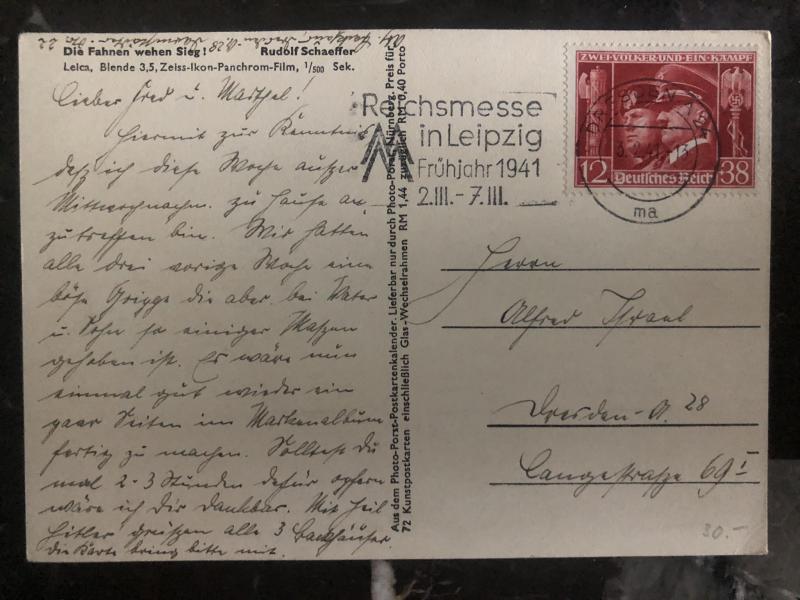 Die Fahnen wehen Sieg! Rudolf Schaeffer
Leica, Blende 3,5, Zeiss-Ikon-Panchrom-Film, 1/500 Sek.
Lieber Fred u. Marthel!
Hiermit zur Kenntnis
daß ich diese Woche außer
Mittwochnachm. zu Hause an-
zutreffen bin. Wir hatten
alle drei vorige Woche eine
böse Grippe die aber bei Vater
u. Sohn so einiger Maszen
gehoben ist. Es wäre nun
einmal gut wieder ein
paar Seiten im Markenalbum
fertig zu machen. Solltest Du
mal 2-3 Stunden dafür opfern
wäre ich Dir dankbar. Mit Heil
Hitler grüszen alle 3 Backhäuser
die Karte bring bitte mit.
Aus dem Photo-Porst-Postkartenkalender. Lieferbar nur durch Photo-Porst, Nürnberg. Preis für
72 Kunstpostkarten einschließlich Glas-Wechselrahmen RM 1,44 zuzüglich RM 0,40 Porto
Reichsmesse
in Leipzig
Frühjahr 1941
2.III.-7.III.
ZWEI·VÖLKER·UND·EIN·KAMPF
12 Deutsches Reich 38
DRESDEN A
ma
Herrn
Alfred
Dresden-A. 28
Langestraße 69 I
30.-